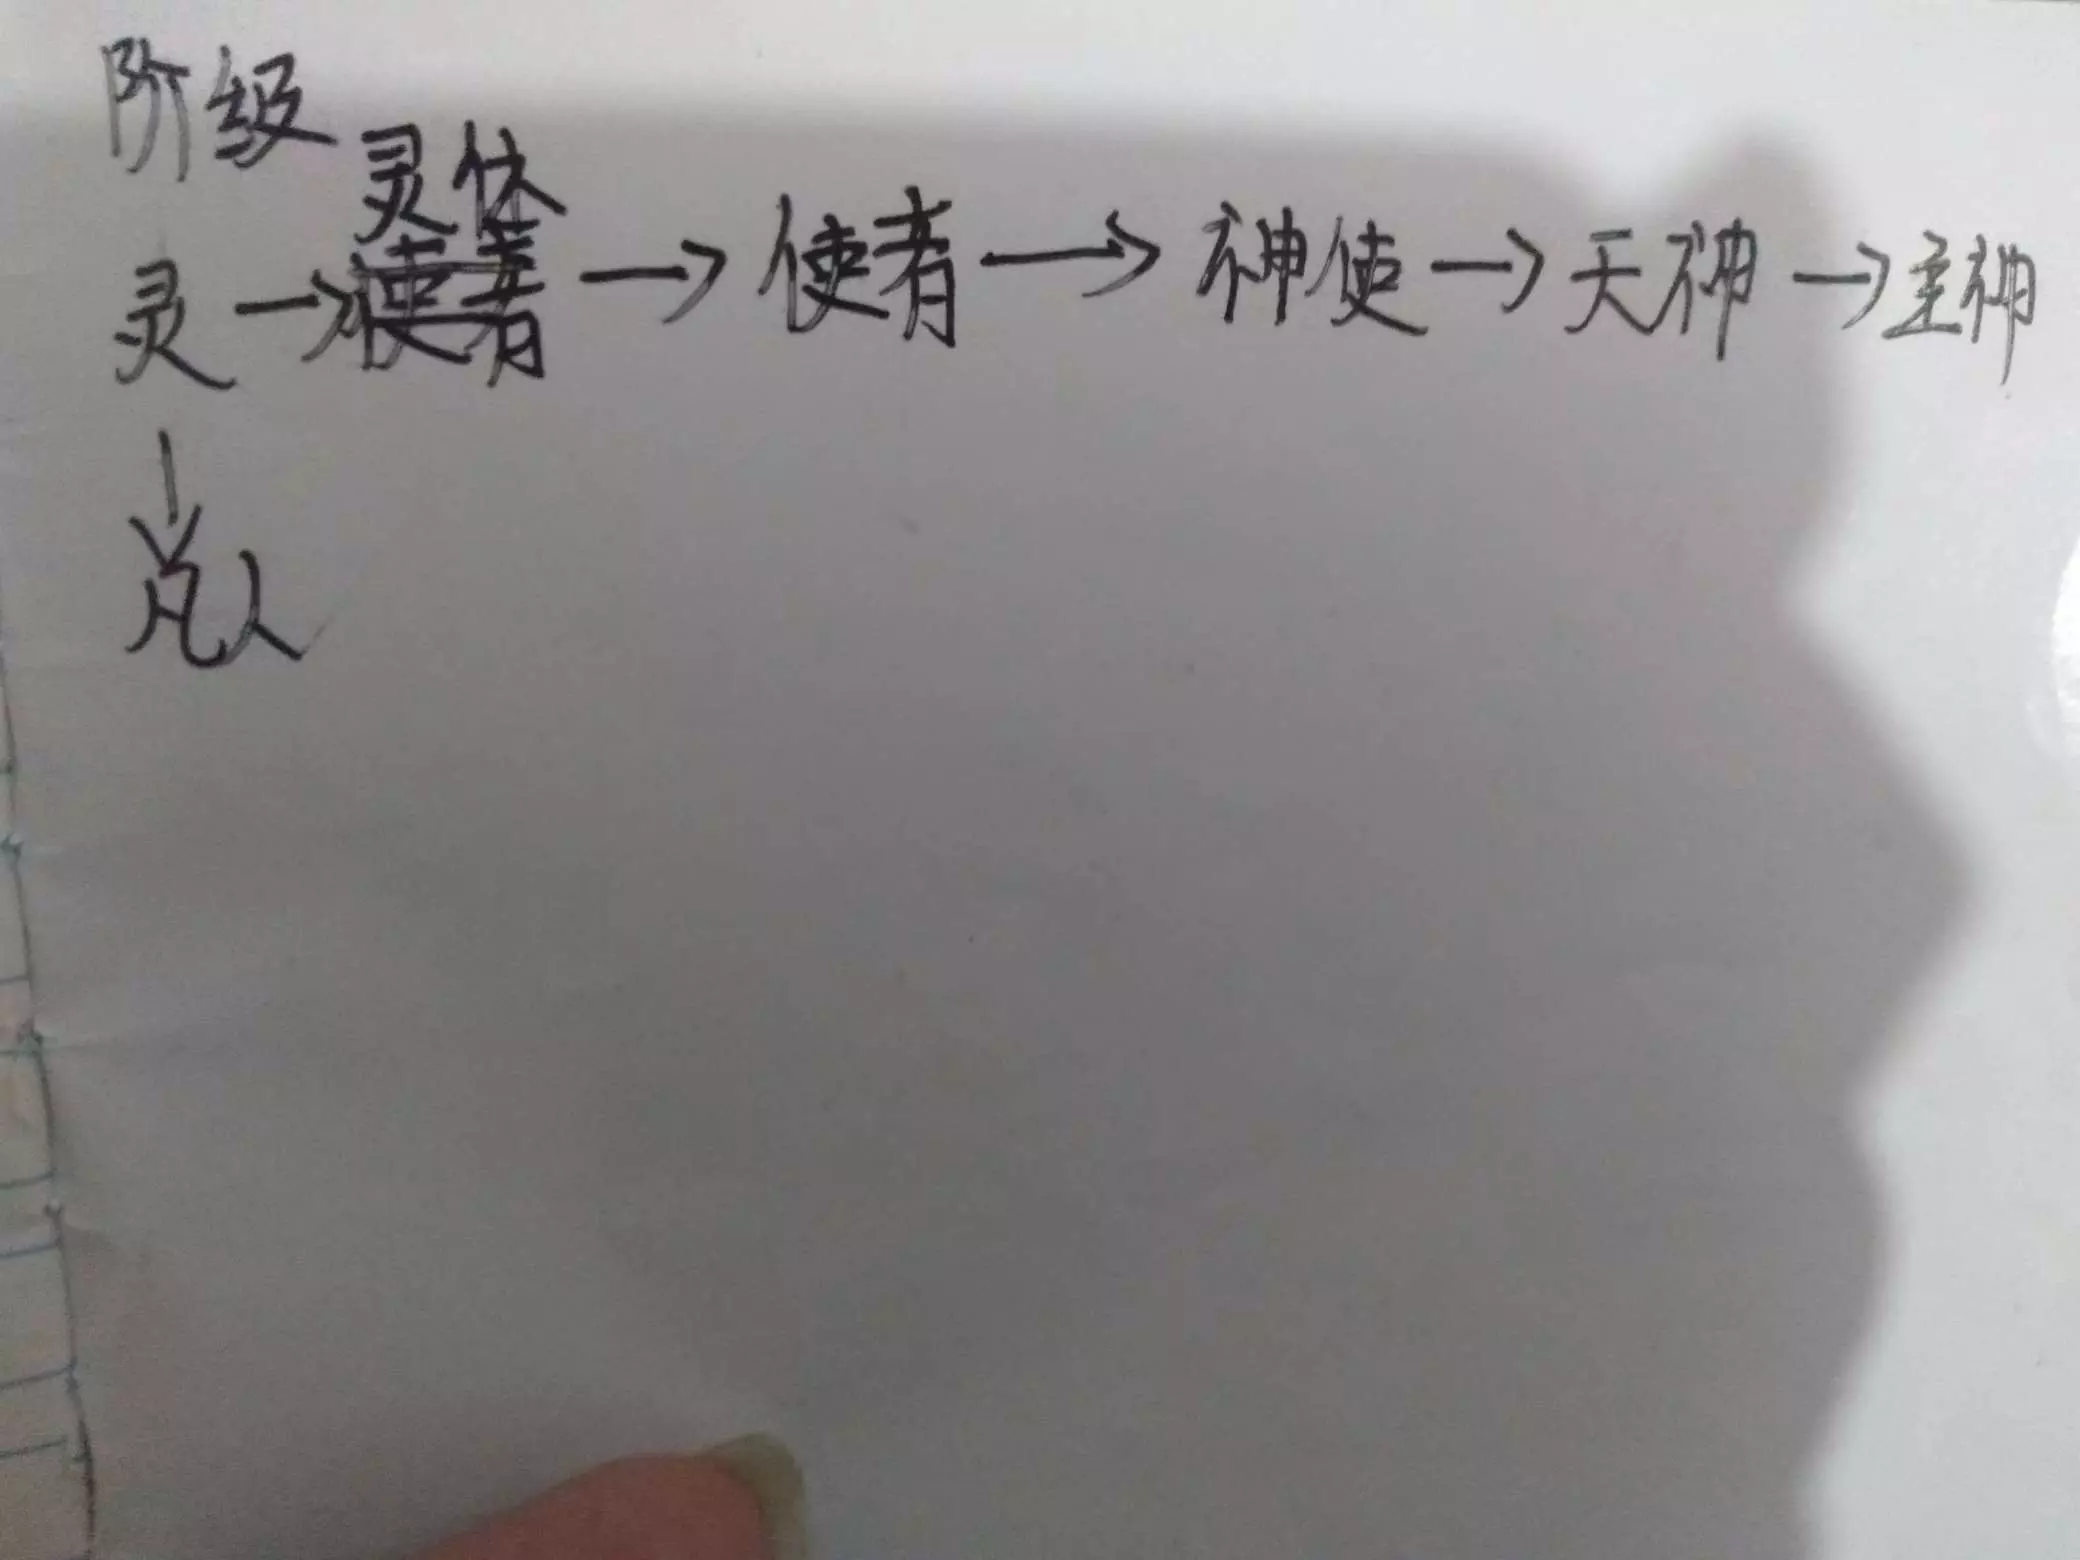 阶级
灵体
灵→使者→使者→神使→天神→主神
↓
凡人